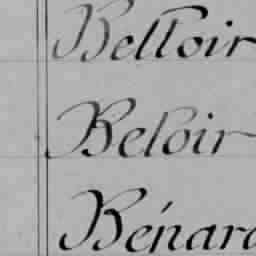 Belloir
Beloir
Bénard